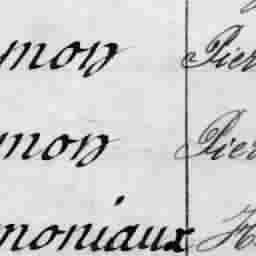 mon Pier
mon Pier
moniaux H